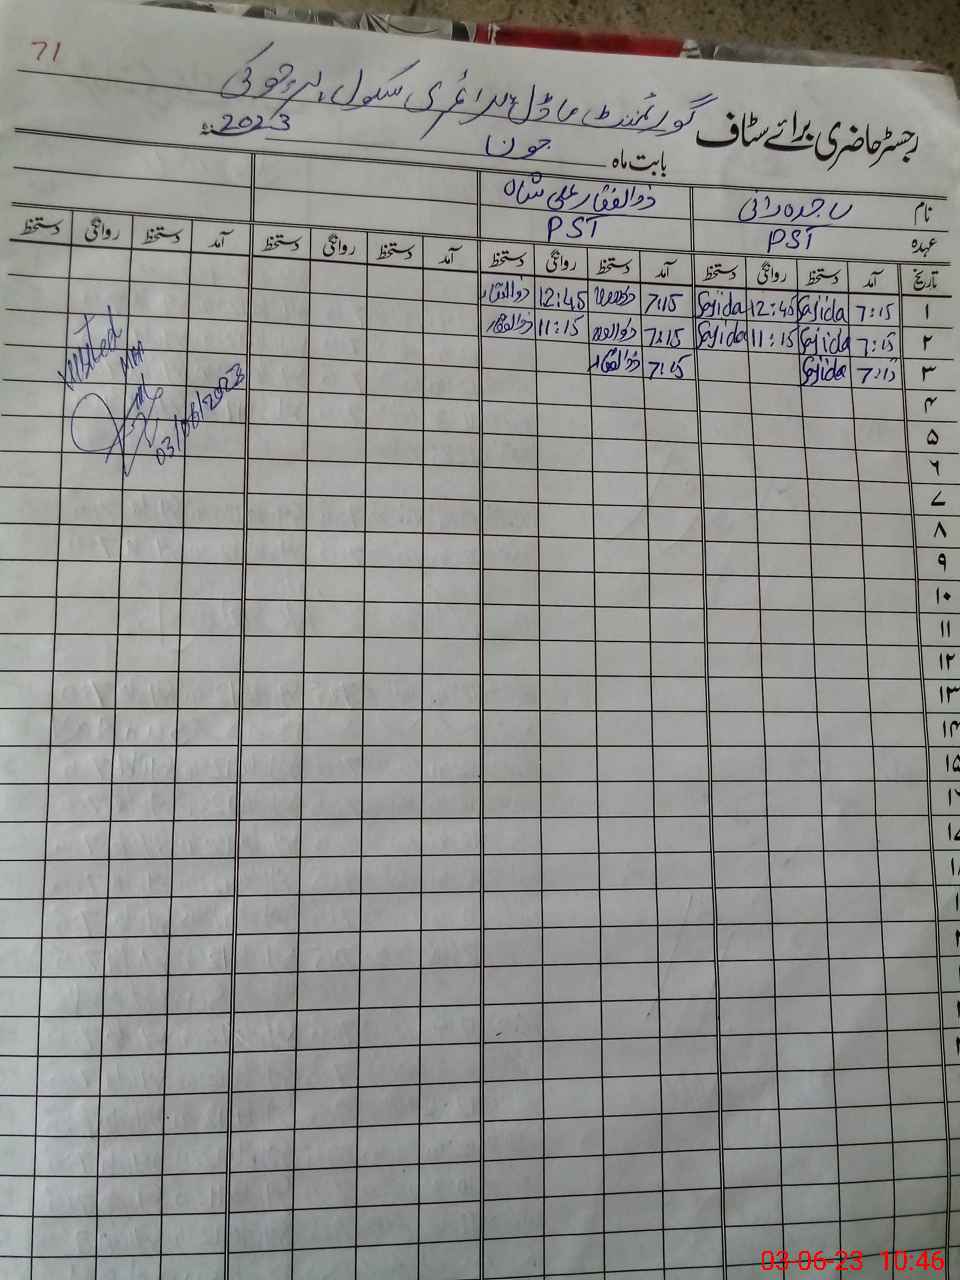 71
رجسٹر حاضری برائے سٹاف گورنمنٹ ماڈل پرائمری سکول
بابت ماہ جون 2023ء
نام ساجدہ رانی ذوالفقار علی شاہ
عہدہ PST PST
تاریخ آمد دستخط روانگی دستخط آمد دستخط روانگی دستخط آمد دستخط روانگی دستخط آمد دستخط روانگی دستخط
۱ 7:15 Sajida 12:45 Sajida 7:15 ذوالفقار 12:45 ذوالفقار
۲ 7:15 Sajida 11:15 Sajida 7:15 ذوالفقار 11:15 ذوالفقار
۳ 7:15 Sajida 7:15 ذوالفقار
۴
۵
۶
۷
۸
۹
۱۰
۱۱
۱۲
۱۳
۱۴
۱۵
Visited
MEA
03/06/2023
03-06-23 10:46